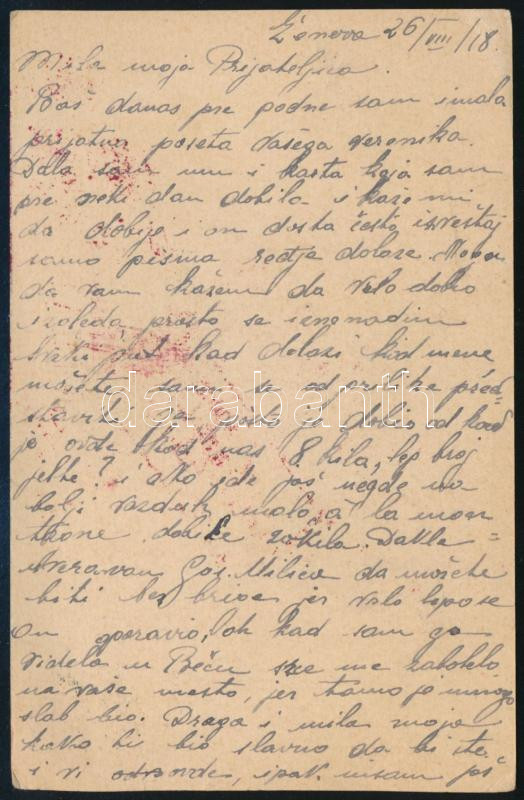 Ženeva 26/VIII/18.
Mila moja Prijateljica.
Baš danas pre podne sam imala
prijatnu poseta Vašega verenika.
Dala sam mu i karta koja sam
pre neki dan dobila i kaže mi
da dobije i on dosta često izveštaj
samo pisma redje dolaze. Mogu
da vam kažem da vrlo dobro
izgleda, prosto se iznenadim
svaki put kad dolazi kod mene
možete i sami se od prilike pred=
staviti sa pošto je dobio od kad
je ovde kod nas 8 kila, lep broj
jelte? i ako ide još negde na
bolji vazduh malo à la mon
tagne dobiće kila. Dakle
uveravam Gož. Milica da možete
biti bez brige jer vrlo lepo se
on oporavio, ok kad sam ga
videla u Beču sve me zabolelo
na vaše mesto, jer tamo je mnogo
slab bio. Draga i mila moja
kako bi bio slavno da bi ste
i vi ovde, ipak nisam još
darabanth.com